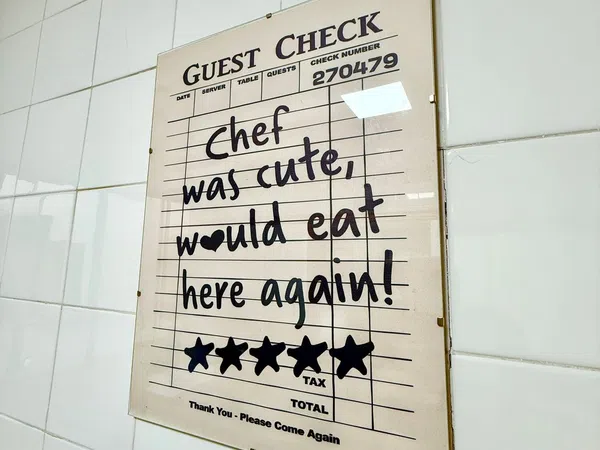 GUEST CHECK
DATE SERVER TABLE QUESTS CHECK NUMBER
270479
Chef
was cute,
w♥uld eat
here again!
★★★★★
TAX
TOTAL
Thank You - Please Come Again